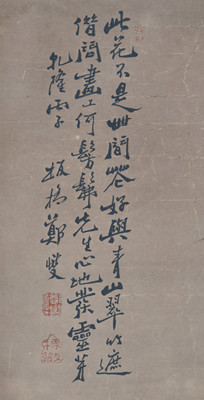 此花不是世間花好與青山翠竹遮
借問畫工何髣髴先生心地靈芽
乾隆丙子 板橋鄭燮